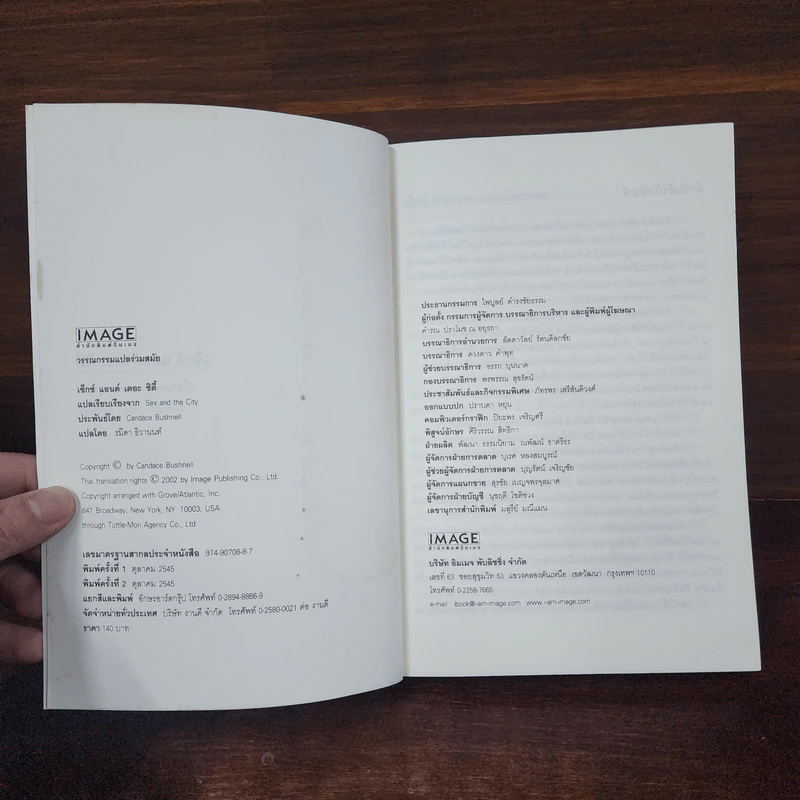 IMAGE
สำนักพิมพ์อิมเมจ
วรรณกรรมแปลร่วมสมัย
เซ็กซ์ แอนด์ เดอะ ซิตี้
แปลเรียบเรียงจาก Sex and the City
ประพันธ์โดย Candace Bushnell
แปลโดย รมิดา ธิวานนท์
Copyright © by Candace Bushnell
Thai translation rights © 2002 by Image Publishing Co., Ltd.
Copyright arranged with Grove/Atlantic, Inc.
841 Broadway, New York, NY 10003, USA
through Tuttle-Mori Agency Co., Ltd.
เลขมาตรฐานสากลประจำหนังสือ 974-90708-8-7
พิมพ์ครั้งที่ 1 ตุลาคม 2545
พิมพ์ครั้งที่ 2 ตุลาคม 2545
แยกสีและพิมพ์ อักษรอาร์ตกรุ๊ป โทรศัพท์ 0-2894-8866-9
จัดจำหน่ายทั่วประเทศ บริษัท งานดี จำกัด โทรศัพท์ 0-2580-0021 ต่อ งานดี
ราคา 140 บาท
ประธานกรรมการ ไพบูลย์ ดำรงชัยธรรม
ผู้ก่อตั้ง กรรมการผู้จัดการ บรรณาธิการบริหาร และผู้พิมพ์ผู้โฆษณา
คำรณ ปราโมช ณ อยุธยา
บรรณาธิการอำนวยการ ลัดดาวัลย์ รัตนดิลกชัย
บรรณาธิการ ดวงดาว คำพุท
ผู้ช่วยบรรณาธิการ อรรถ บุนนาค
กองบรรณาธิการ พรพรรณ สุขรัตน์
ประชาสัมพันธ์และกิจกรรมพิเศษ ภัทรพร เสรีสันติวงศ์
ออกแบบปก ปราบดา หยุ่น
คอมพิวเตอร์กราฟิก ปิยะพร เจริญศรี
พิสูจน์อักษร ศิริวรรณ สิทธิกา
ฝ่ายผลิต พัฒนา ธรรมนิยาม ณพัฒน์ ธาตรีธร
ผู้จัดการฝ่ายการตลาด บุเรศ หลงสมบูรณ์
ผู้ช่วยผู้จัดการฝ่ายการตลาด บุญรัตน์ เจริญชัย
ผู้จัดการแผนกขาย สุรชัย เบญจพรจุลมาศ
ผู้จัดการฝ่ายบัญชี นุชฤดี โชติช่วง
เลขานุการสำนักพิมพ์ มลุรีย์ มณีแมน
IMAGE
สำนักพิมพ์อิมเมจ
บริษัท อิมเมจ พับลิชชิ่ง จำกัด
เลขที่ 63 ซอยสุขุมวิท 53 แขวงคลองตันเหนือ เขตวัฒนา กรุงเทพฯ 10110
โทรศัพท์ 0-2258-7665
e-mail ibook@i-am-image.com www.i-am-image.com